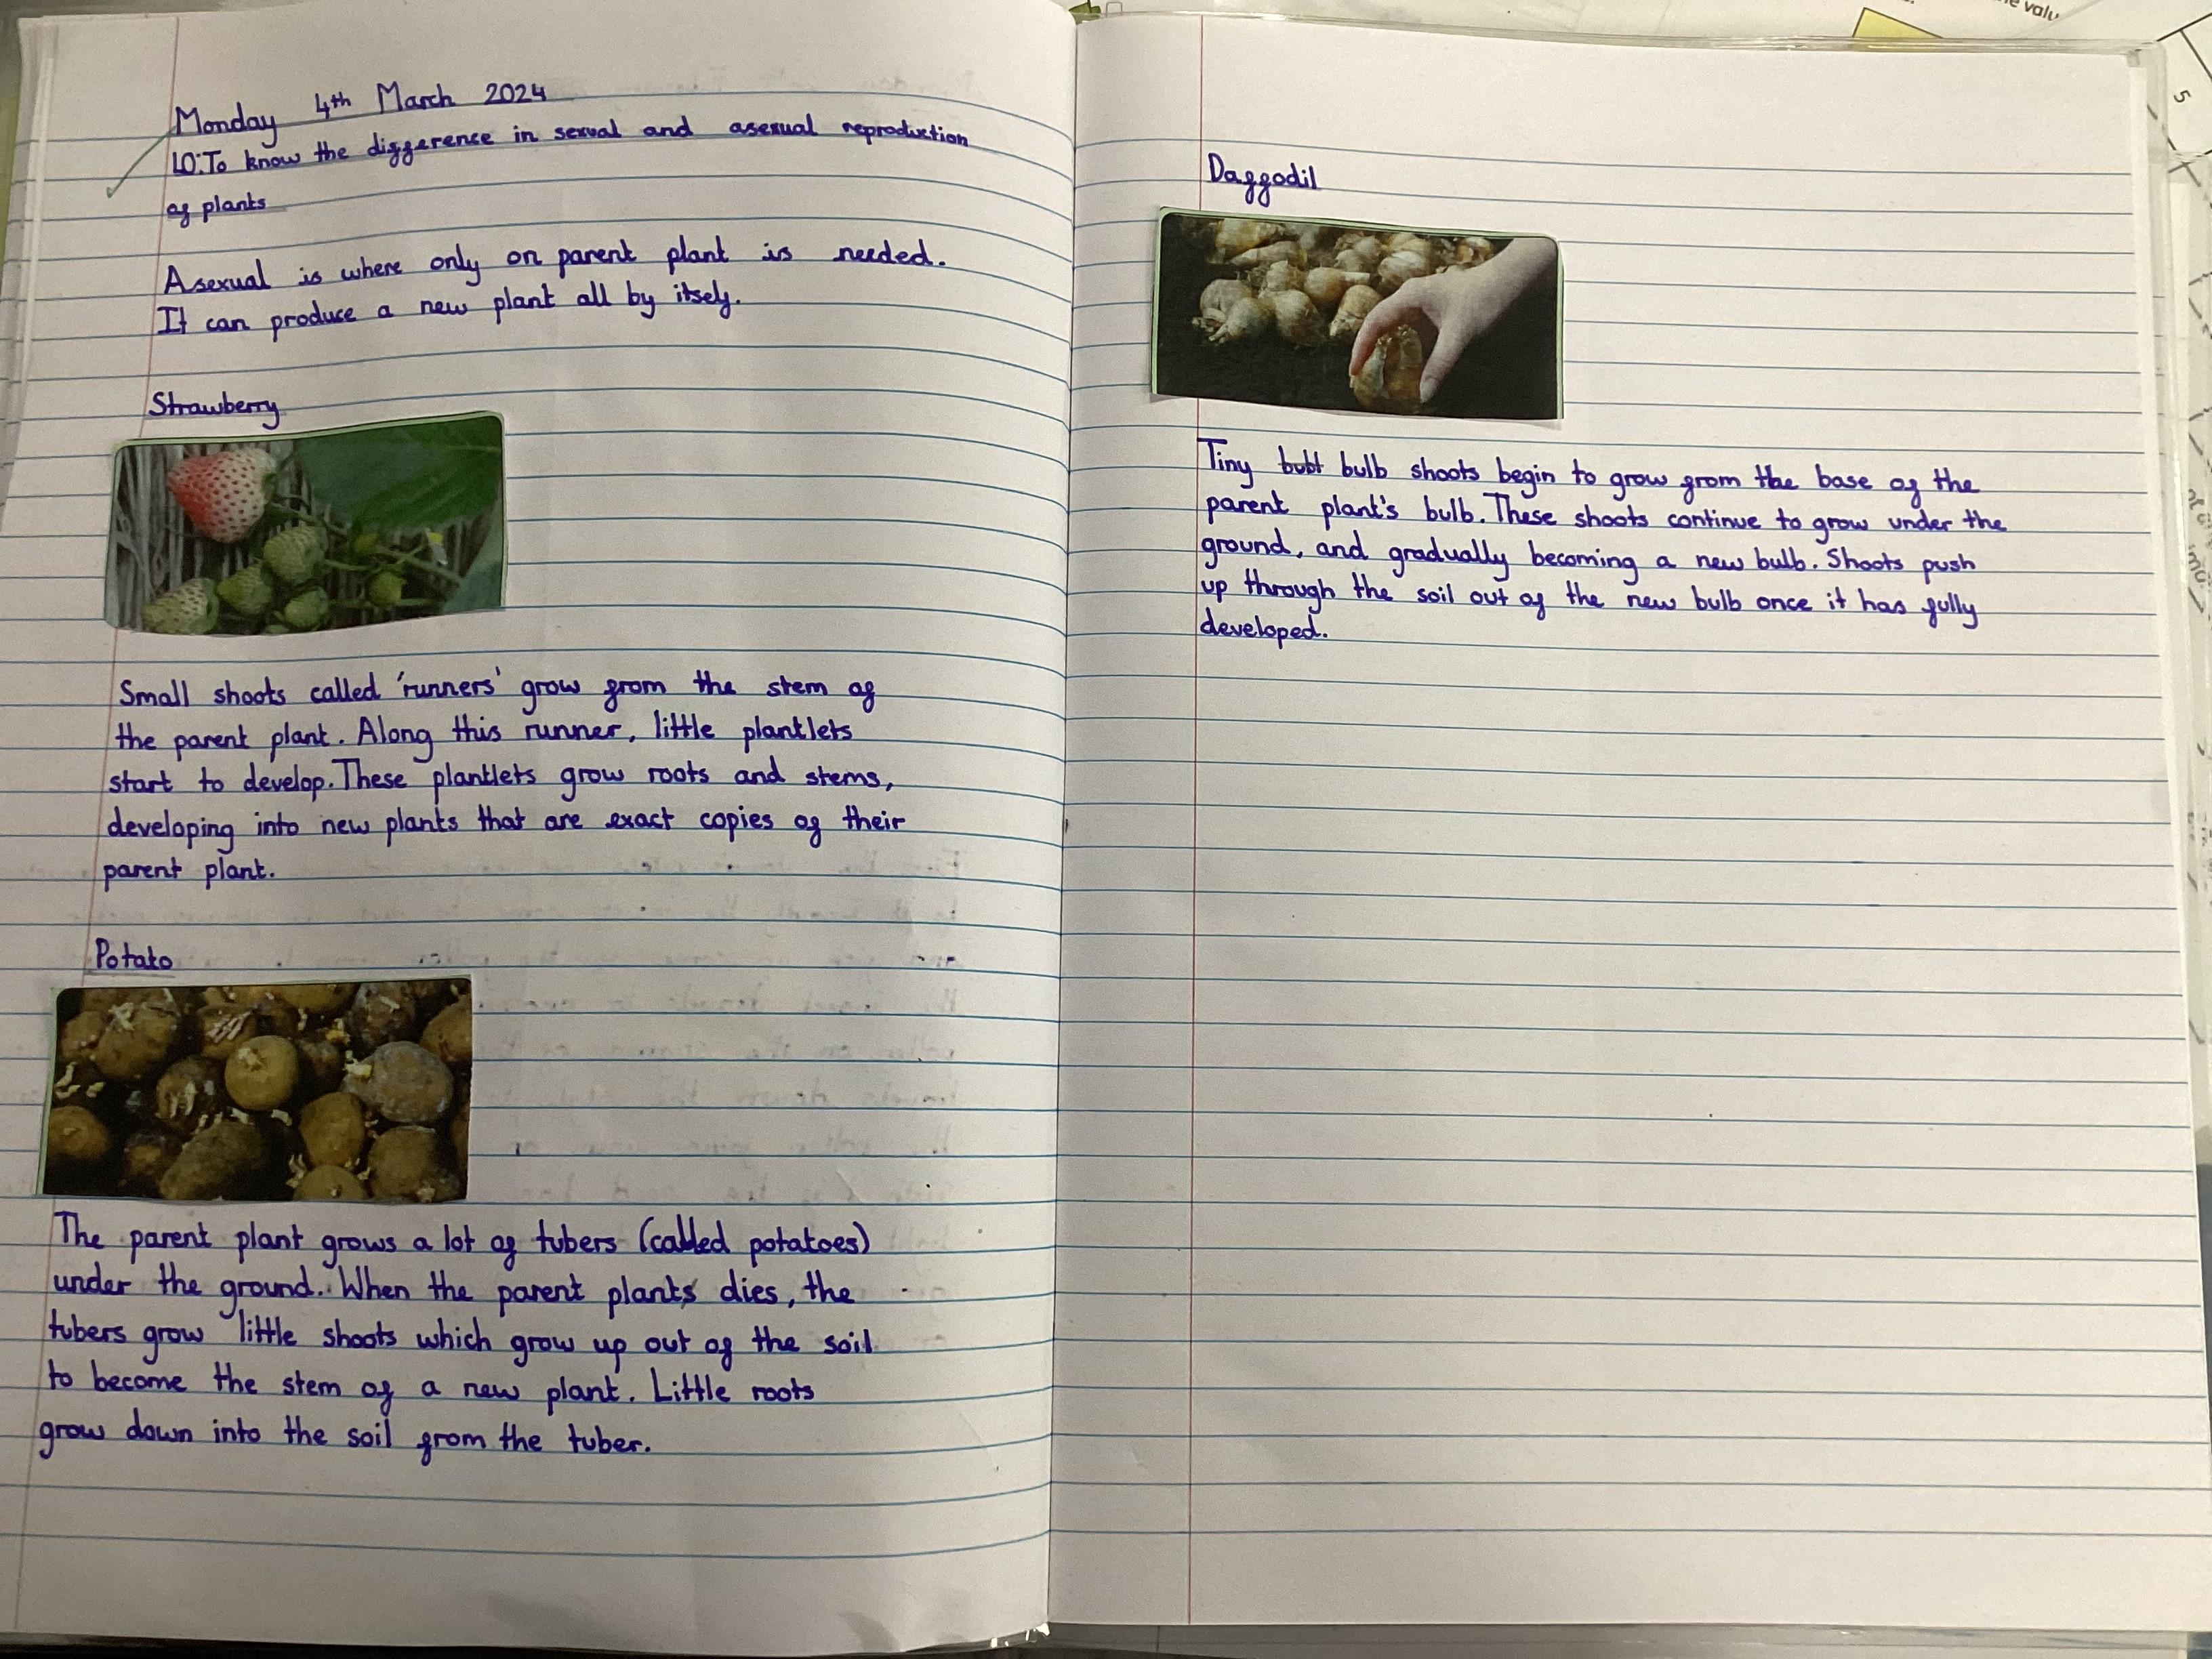 Monday 4th March 2024
LO: To know the difference in sexual and asexual reproduction
of plants
Asexual is where only on parent plant is needed.
It can produce a new plant all by itself.
Strawberry
Small shoots called 'runners' grow from the stem of
the parent plant. Along this runner, little plantlets
start to develop. These plantlets grow roots and stems,
developing into new plants that are exact copies of their
parent plant.
Potato
The parent plant grows a lot of tubers (called potatoes)
under the ground. When the parent plants dies, the
tubers grow little shoots which grow up out of the soil
to become the stem of a new plant. Little roots
grow down into the soil from the tuber.
Daffodil
Tiny bulb shoots begin to grow from the base of the
parent plant's bulb. These shoots continue to grow under the
ground, and gradually becoming a new bulb. Shoots push
up through the soil out of the new bulb once it has fully
developed.
valu
5